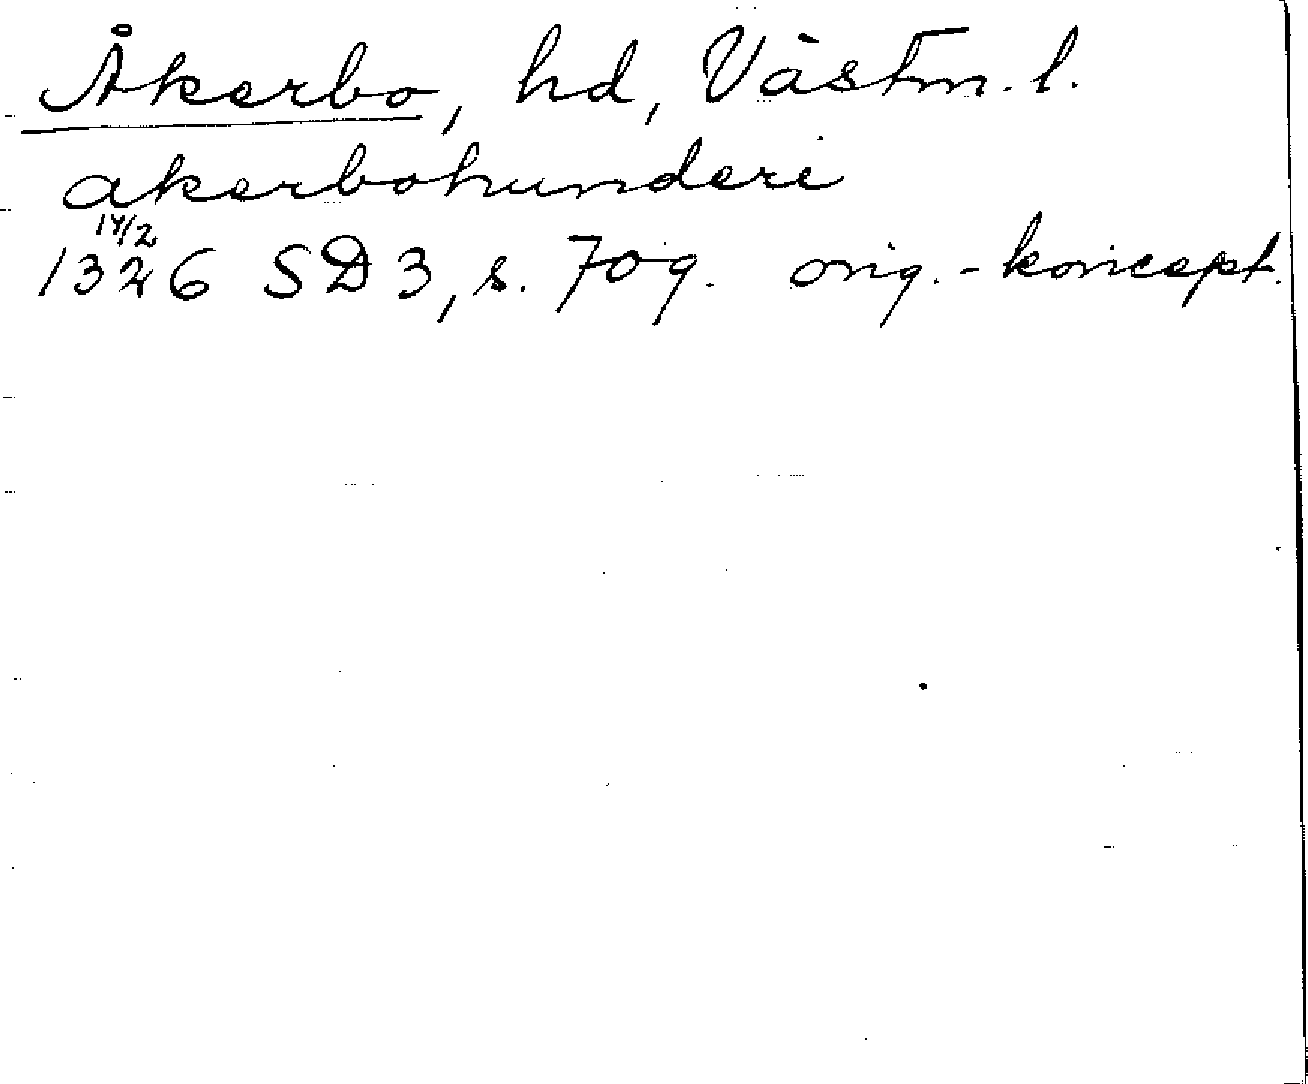 Åkerbo, hd, Västm. l.
akerbohundere
14/2
1326 SD 3, s. 709. orig.-koncept.